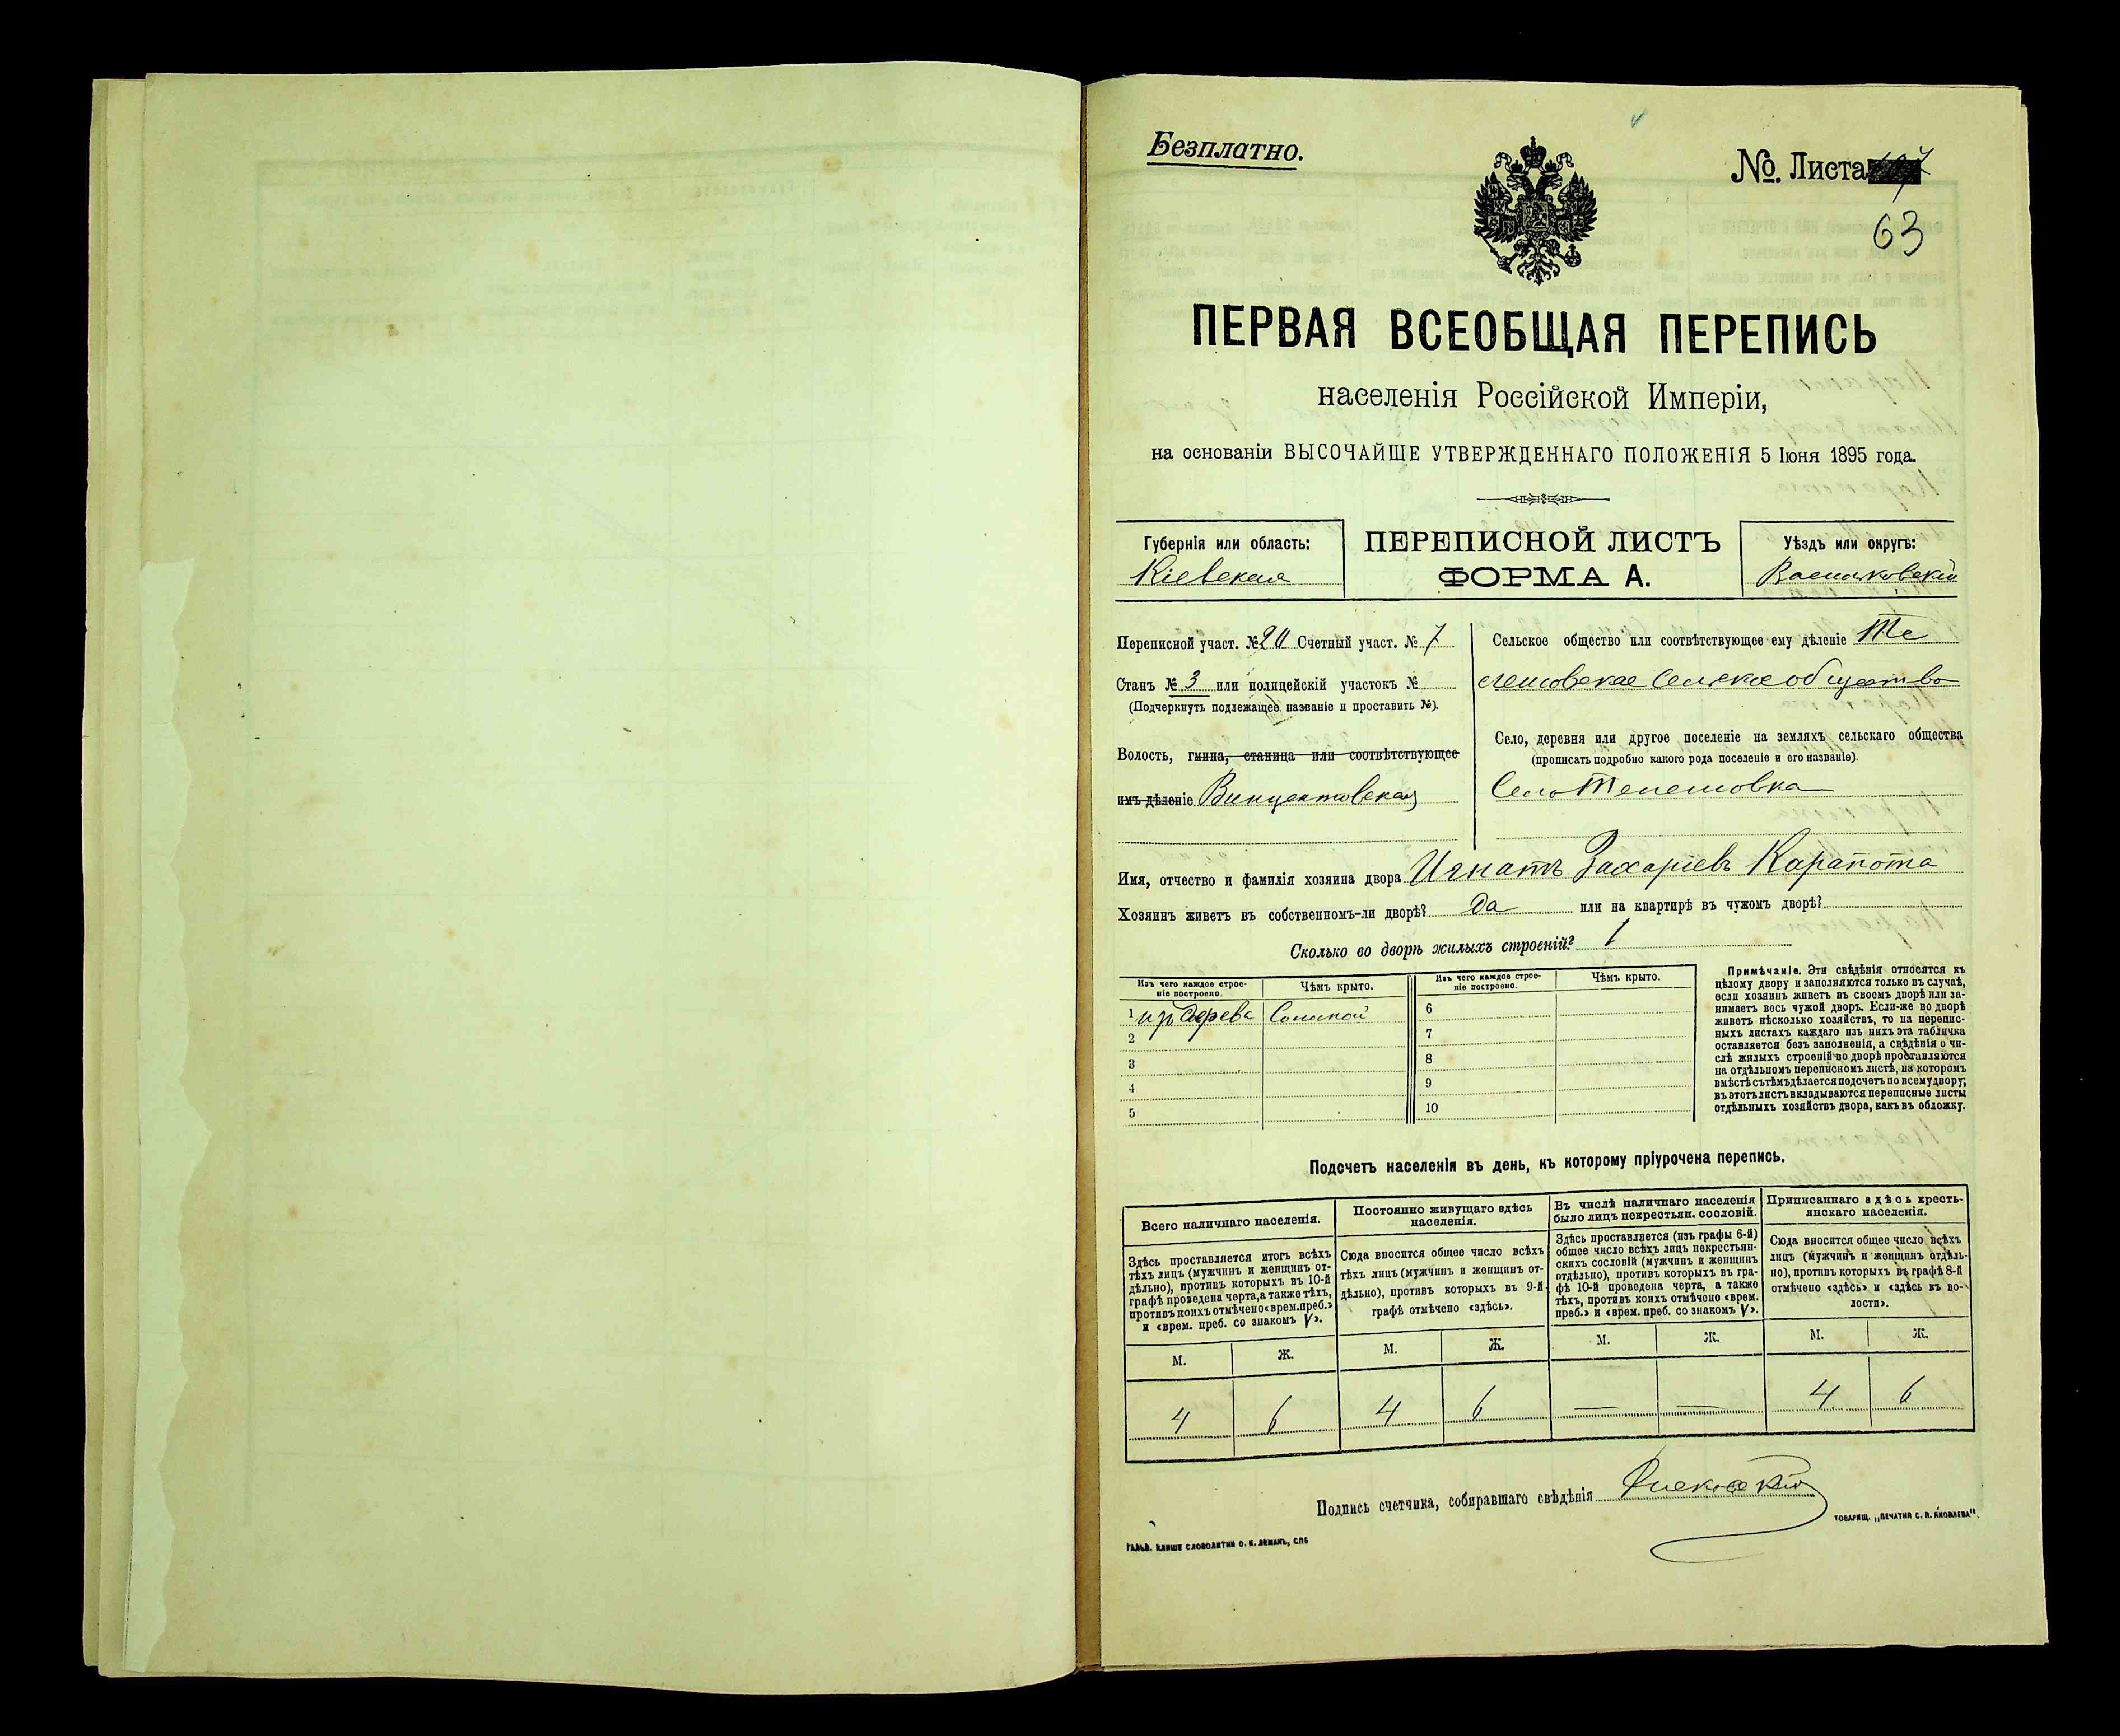 Безплатно.
№. Листа
63
ПЕРВАЯ ВСЕОБЩАЯ ПЕРЕПИСЬ
населенія Россійской Имперіи,
на основаніи ВЫСОЧАЙШЕ УТВЕРЖДЕННАГО ПОЛОЖЕНІЯ 5 Іюня 1895 года.
Губернія или область:
Кіевская
ПЕРЕПИСНОЙ ЛИСТЪ
ФОРМА А.
Уѣздъ или округъ:
Васильковскій
Переписной участ. № 20 Счетный участ. № 7
Станъ № 3 или полицейскій участокъ №
(Подчеркнуть подлежащее названіе и проставить №).
Волость, гмина, станица или соотвѣтствующее
имъ дѣленіе Винцентовская
Сельское общество или соотвѣтствующее ему дѣленіе Те
лешовское Сельское общество
Село, деревня или другое поселеніе на земляхъ сельскаго общества
(прописать подробно какого рода поселеніе и его названіе).
Село Телешовка
Имя, отчество и фамилія хозяина двора Игнатъ Захаріевъ Карапота
Хозяинъ живетъ въ собственномъ-ли дворѣ? Да или на квартирѣ въ чужомъ дворѣ?
Сколько во дворѣ жилыхъ строеній? 1
Изъ чего каждое строе-
ніе построено.
Чѣмъ крыто.
1 изъ дерева Соломой
2
3
4
5
Изъ чего каждое строе-
ніе построено.
Чѣмъ крыто.
6
7
8
9
10
Примѣчаніе. Эти свѣдѣнія относятся къ
цѣлому двору и заполняются только въ случаѣ,
если хозяинъ живетъ въ своемъ дворѣ или за-
нимаетъ весь чужой дворъ. Если-же во дворѣ
живетъ нѣсколько хозяйствъ, то на перепис-
ныхъ листахъ каждаго изъ нихъ эта табличка
оставляется безъ заполненія, а свѣдѣнія о чи-
слѣ жилыхъ строеній во дворѣ проставляются
на отдѣльномъ переписномъ листѣ, на которомъ
вмѣстѣ съ тѣмъ дѣлается подсчетъ по всему двору;
въ этотъ листъ вкладываются переписные листы
отдѣльныхъ хозяйствъ двора, какъ въ обложку.
Подсчетъ населенія въ день, къ которому пріурочена перепись.
Всего наличнаго населенія.
Здѣсь проставляется итогъ всѣхъ
тѣхъ лицъ (мужчинъ и женщинъ от-
дѣльно), противъ которыхъ въ 10-й
графѣ проведена черта, а также тѣхъ,
противъ коихъ отмѣчено «врем. преб.»
и «врем. преб. со знакомъ V».
М. Ж.
4 6
Постоянно живущаго здѣсь
населенія.
Сюда вносится общее число всѣхъ
тѣхъ лицъ (мужчинъ и женщинъ от-
дѣльно), противъ которыхъ въ 9-й
графѣ отмѣчено «здѣсь».
М. Ж.
4 6
Въ числѣ наличнаго населенія
было лицъ некрестьян. сословій.
Здѣсь проставляется (изъ графы 6-й)
общее число всѣхъ лицъ некрестьян-
скихъ сословій (мужчинъ и женщинъ
отдѣльно), противъ которыхъ въ гра-
фѣ 10-й проведена черта, а также
тѣхъ, противъ коихъ отмѣчено «врем.
преб.» и «врем. преб. со знакомъ V».
М. Ж.
— —
Приписаннаго здѣсь кресть-
янскаго населенія.
Сюда вносится общее число всѣхъ
лицъ (мужчинъ и женщинъ отдѣль-
но), противъ которыхъ въ графѣ 8-й
отмѣчено «здѣсь» и «здѣсь къ во-
лости».
М. Ж.
4 6
Подпись счетчика, собиравшаго свѣдѣнія
ГАЛЬВ. КЛИШЕ СЛОВОЛИТНИ О. И. ЛЕМАНЪ, СПБ
ТОВАРИЩ. „ПЕЧАТНЯ С. П. ЯКОВЛЕВА".